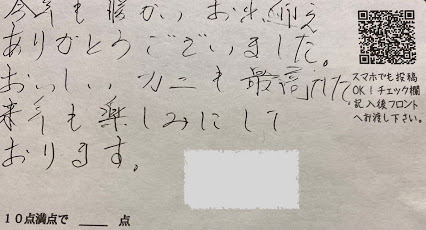 今年も暖かいお出迎え
ありがとうございました。
おいしいカニも最高でした
来年も楽しみにして
おります。
スマホでも投稿
OK！チェック欄
記入後フロント
へお渡し下さい。
10点満点で 点